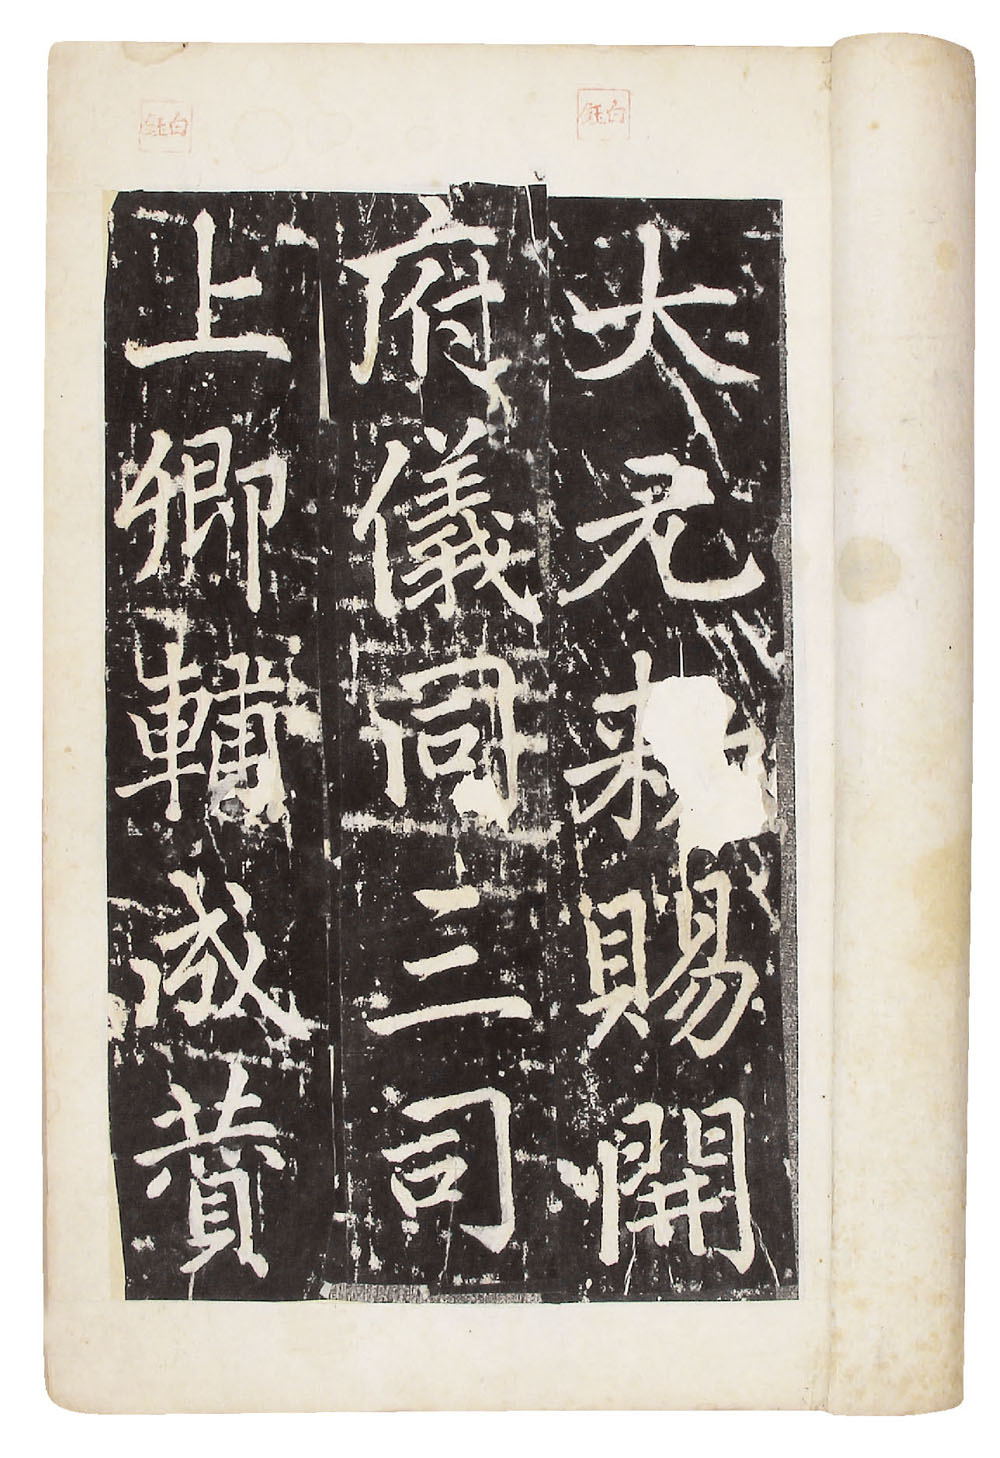 白鈺
白鈺
大元勑賜開
府儀同三司
上卿輔成贊